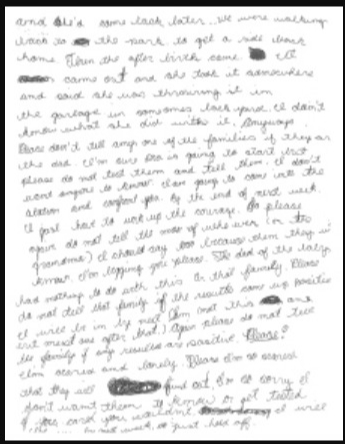 and she'd come back later.. We were walking
back to the park to get a ride back
home. Then the after birth came
came out and she took it somewhere
and said she was throwing it in
the garbage in someones back yard. I don't
know what she did with it. Anyways
Please don't tell any one of the families if they are
the dad. I'm sure is going to start but
please do not test them and tell them. I don't
want anyone to know. I am going to come into the
station and confess you. By the end of next week.
I just have to work up the courage. So please
again do not tell the mom of who ever (or the
grandma) I should say too because then they will
know. I'm begging you please. The dad of the baby
had nothing to do with this or that family. Please
do not tell that family if the results come up positive
I will be in by next this and
after that.) Again please do not tell
the family if any results are positive. Please?
I'm scared and lonely. Please I'm so scared
that they will find out. I'm so sorry I
don't want them to know or get tested
if you could you wouldn't I will
next week, so just hold off.